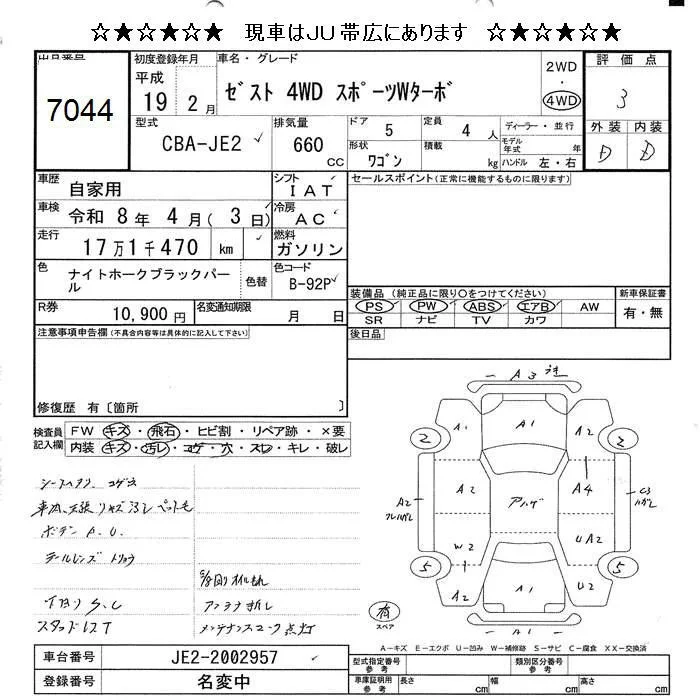 ☆★☆★☆★ 現車はJU帯広にあります ☆★☆★☆★
出品番号
7044
初度登録年月
平成
19 2 月
車名・グレード
ゼスト 4WD スポーツWターボ
2WD
・
4WD
評価点
3
型式
CBA-JE2
排気量
660
CC
ドア
5
定員
4 人
ディーラー・並行
形状
ワゴン
積載
kg
モデル年式
年
ハンドル 左・右
外装 内装
D D
車歴
自家用
シフト
IAT
セールスポイント(正常に機能するものに限ります)
車検
令和 8年 4月( 3日)
冷房
AC
走行
17万1千470 km
燃料
ガソリン
色
ナイトホークブラックパール
色替
色コード
B-92P
装備品 (純正品に限り○をつけてください)
新車保証書
PS PW ABS エアB AW
有・無
SR ナビ TV カワ
R券
10,900 円
名変通知期限
月 日
注意事項申告欄(不具合内容等は具体的に記入して下さい)
後日品
修復歴 有〔箇所 〕
検査員記入欄
FW キズ・飛石・ヒビ割・リペア跡・×要
内装 キズ・汚レ・コゲ・穴・スレ・キレ・破レ
テールレンズ
アンテナ折レ
メンテナンスマーク点灯
A3
A1
A1
A2
2
2
A2
A2
アハゲ
A4
C3
W2
UA2
5
5
A2
A1
U2
有
スペア
A-キズ E-エクボ U-凹み W-補修跡 S-サビ C-腐食 XX-交換済
車台番号
JE2-2002957
型式指定番号
参考
類別区分番号
参考
登録番号
名変中
車庫証明用
参考
長さ
cm
幅
cm
高さ
cm